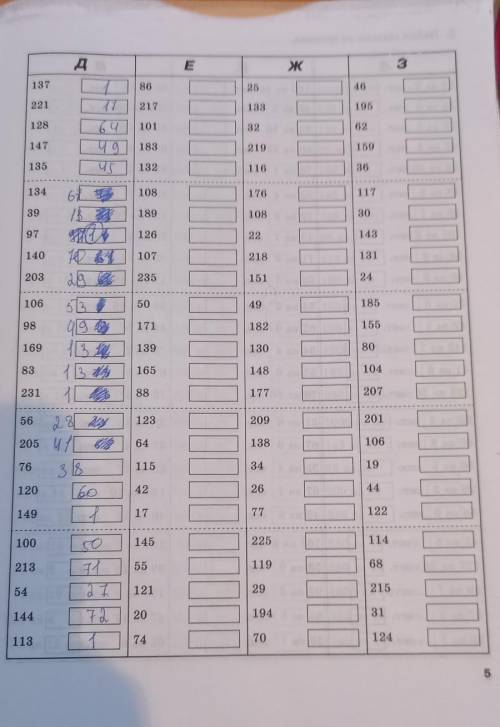 Д Е Ж З
137 1 86 25 46
221 17 217 133 195
128 64 101 32 62
147 49 183 219 159
135 45 132 116 36
134 67 108 176 117
39 13 189 108 30
97 1 126 22 143
140 70 107 218 131
203 29 235 151 24
106 53 50 49 185
98 49 171 182 155
169 13 139 130 80
83 13 165 148 104
231 1 88 177 207
56 28 123 209 201
205 41 64 138 106
76 38 115 34 19
120 60 42 26 44
149 1 17 77 122
100 50 145 225 114
213 71 55 119 68
54 27 121 29 215
144 72 20 194 31
113 1 74 70 124
5